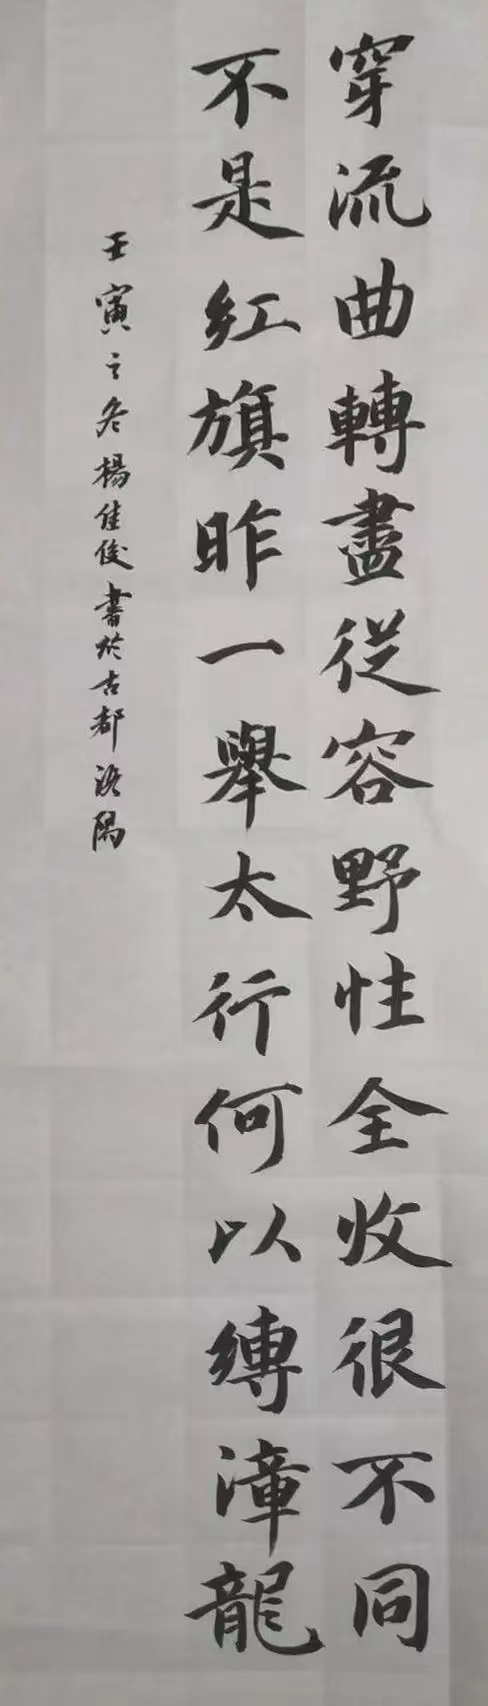 穿流曲轉盡從容野性全收很不同
不是紅旗昨一舉太行何以縛漳龍
壬寅之冬楊佳俊書於古都洛陽